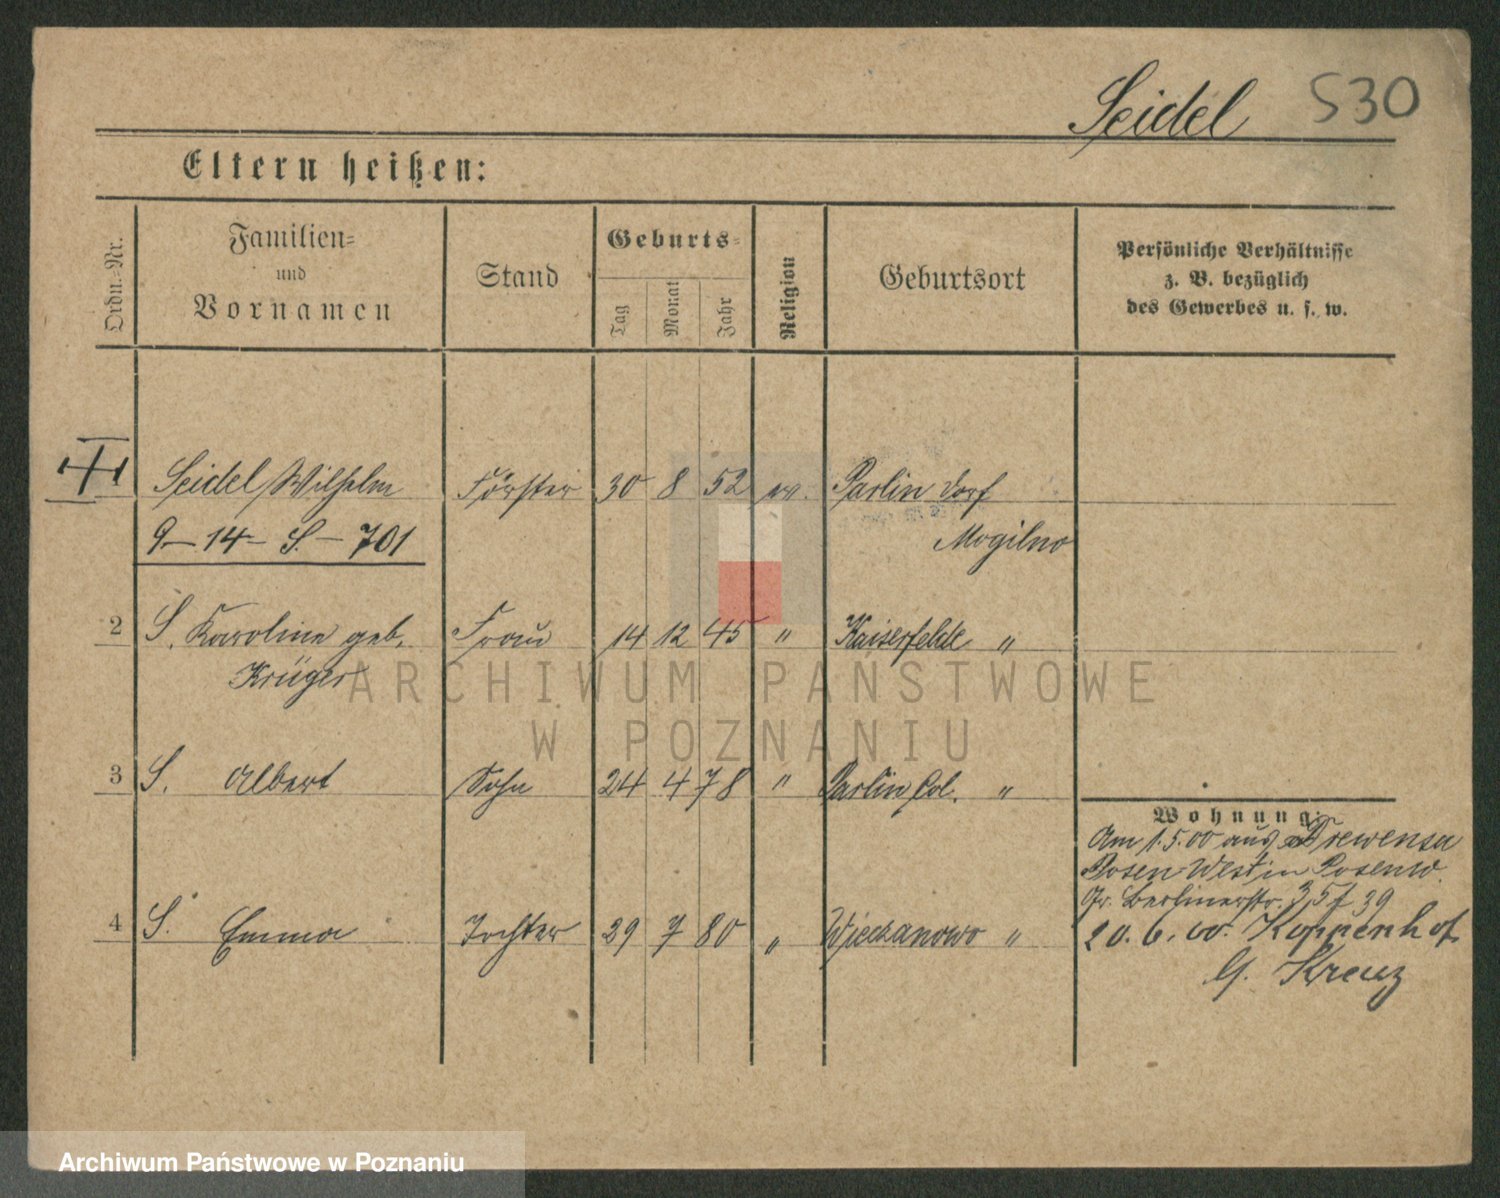 Seidel 530
Eltern heißen:
Ordn.=Nr.
Familien=
und
Vornamen
Stand
Geburts=
Tag Monat Jahr
Religion
Geburtsort
Persönliche Verhältnisse
z. B. bezüglich
des Gewerbes u. s. w.
Seidel, Wilhelm Förster 30 8 52 ev. Parlin Dorf
9 – 14 – S. – 701 Mogilno
2 S. Karoline geb. Frau 14 12 45 " Kaiserfelde "
Krüger
ARCHIWUM PAŃSTWOWE
W POZNANIU
3 S. Albert Sohn 24 4 78 " Parlin Col. "
Wohnung:
Am 1.5.00 aus
Posen West in Posen W.
Gr. Berlinerstr.
4 S. Emma Tochter 29 7 80 " Wieczanowo "
20. 6. 00. Koppenhof
G. Kreuz
Archiwum Państwowe w Poznaniu